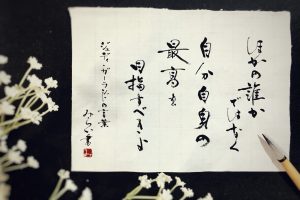 ほかの誰か
ではなく
自分自身の
最高を
目指すべきよ
ジュディ・ガーランドの言葉
みらい書